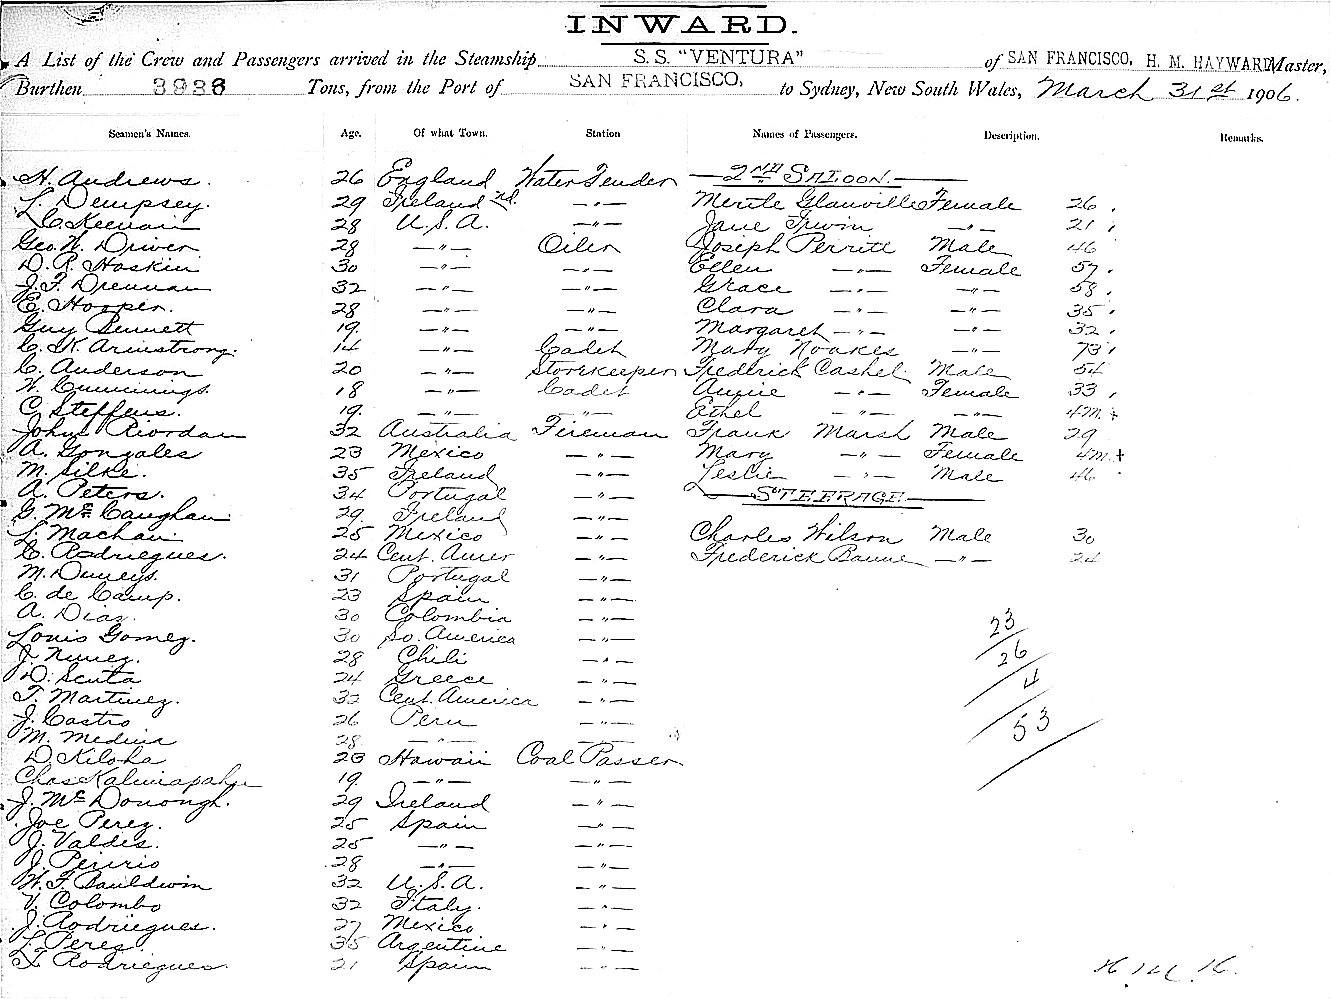 INWARD.
A List of the Crew and Passengers arrived in the Steamship S. S. "VENTURA" of SAN FRANCISCO, H. M. HAYWARD Master,
Burthen 3986 Tons, from the Port of SAN FRANCISCO, to Sydney, New South Wales, March 31st 1906.
Seamen's Names. Age. Of what Town. Station Names of Passengers. Description. Remarks.
H. Andrews. 26 England Water Tender 2ND SALOON.
L. Dempsey. 29 Ireland —"— Merite Glanville Female 26
L. C. Keenan 28 U.S.A. —"— Jane Irwin —"— 21
Geo. W. Driver 28 —"— Oiler Joseph Perritt Male 46
D. R. Hoskin 30 —"— —"— Ellen —"— Female 57
J. F. Drennan 32 —"— —"— Grace —"— —"— 58
E. Hooper. 28 —"— —"— Clara —"— —"— 35
Guy Bennett 19 —"— —"— Margaret —"— —"— 32
C. K. Armstrong. 14 —"— Cadet Mary Noakes —"— 73
C. Anderson 20 —"— Storekeeper Frederick Cashel Male 54
W. Cummings. 18 —"— Cadet Annie —"— Female 33
C. Steffens. 19 —"— —"— Ethel —"— —"— 4m. +
John Riordan 32 Australia Fireman Frank Marsh Male 29
A. Gonzales 23 Mexico —"— Mary —"— Female 4m. +
M. Silke. 35 Ireland —"— Leslie —"— Male 46
A. Peters. 34 Portugal —"— STEERAGE
G. McCaughan 29 Ireland —"—
L. Machan 25 Mexico —"— Charles Wilson Male 30
C. Rodriegues. 24 Cent. Amer —"— Frederick —"— 24
M. 31 Portugal —"—
C. de Camp. 23 Spain —"—
A. Diaz. 30 Colombia —"—
Louis Gomez. 30 So. America —"— 23
J. Nunez. 28 Chili —"— 26
D. Scuta 24 Greece —"— 4
T. Martinez. 32 Cent. America —"—
J. Castro 26 Peru —"— 53
M. Medina 28 —"— —"—
D. Kiloha 23 Hawaii Coal Passer
Chas 19 —"— —"—
J. McDonough. 29 Ireland —"—
Joe Perez. 25 Spain —"—
J. Valdes. 25 —"— —"—
J. 28 —"— —"—
W. F. Bauldwin 32 U.S.A. —"—
V. Colombo 32 Italy. —"—
J. Rodriegues. 27 Mexico —"—
L. Perez 35 Argentine —"—
T. Rodriegues. 21 Spain —"—